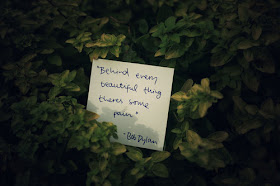 "Behind every
beautiful thing
there's some
pain."
- Bob Dylan